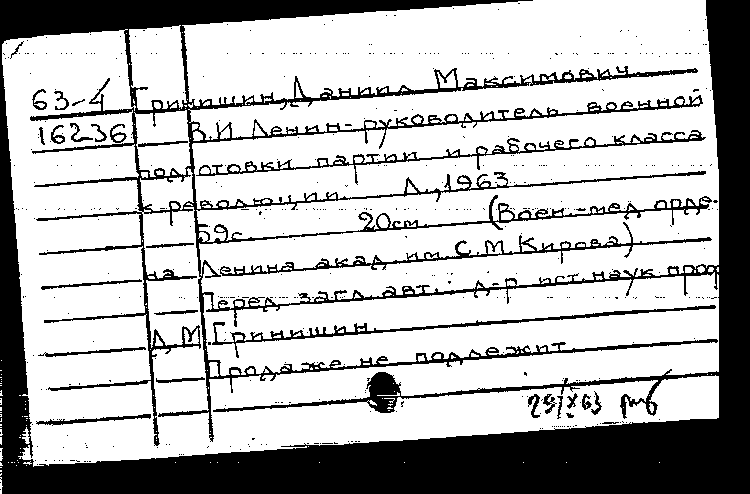 63-4 Гринишин, Даниил Максимович.
16236 В.И. Ленин - руководитель военной
подготовки партии и рабочего класса
к революции. Л., 1963.
59с. 20см. (Воен.-мед. орде-
на Ленина акад. им. С.М. Кирова).
Перед загл. авт.: д-р ист. наук проф
Д.М. Гринишин.
Продаже не подлежит.
29/X 63